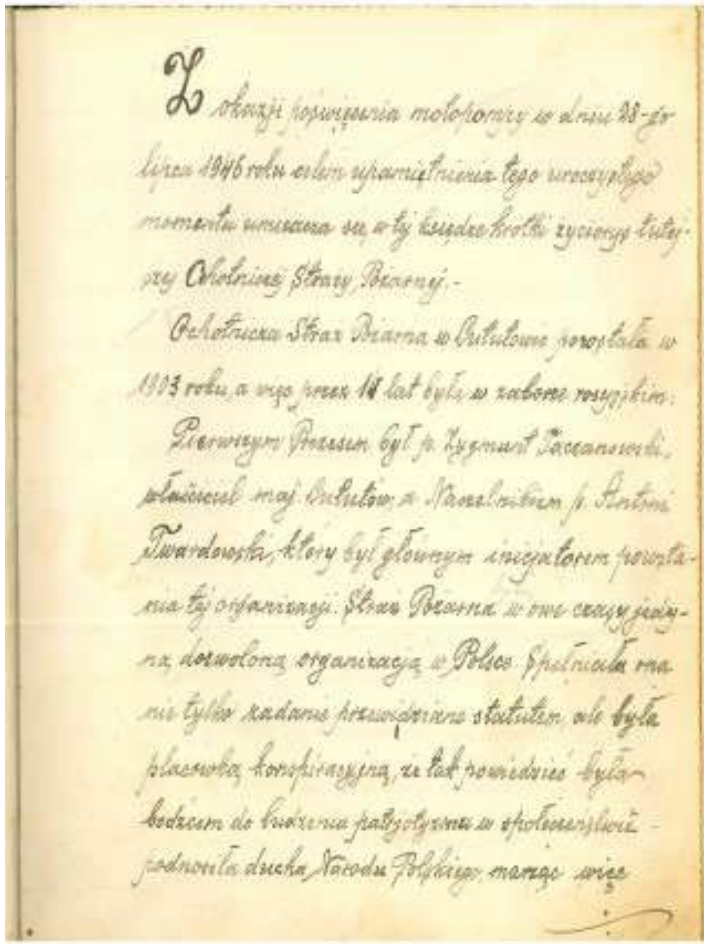 Z okazji poświęcenia motopompy w dniu 28-go
lipca 1946 roku celem upamiętnienia tego uroczystego
momentu umieszcza się w tej księdze krotki życiorys tutej-
szej Ochotniczej Straży Pożarnej.-
Ochotnicza Straż Pożarna w Lututowie powstała w
1903 roku, a więc przez 11 lat była w zaborze rosyjskim.
Pierwszym Prezesem był p. Zygmunt Taczanowski,
właściciel maj. Lututów, a Naczelnikiem p. Antoni
Twardowski, który był głównym inicjatorem powsta-
nia tej organizacji. Straż Pożarna w owe czasy jedy-
ną dozwoloną organizacją w Polsce. Spełniała ona
nie tylko zadanie przewidziane statutem, ale była
placówką konspiracyjną, że tak powiedzieć była
bodźcem do budzenia patrjotyzmu w społeczeństwie -
podnosiła ducha Narodu Polskiego, mając więc